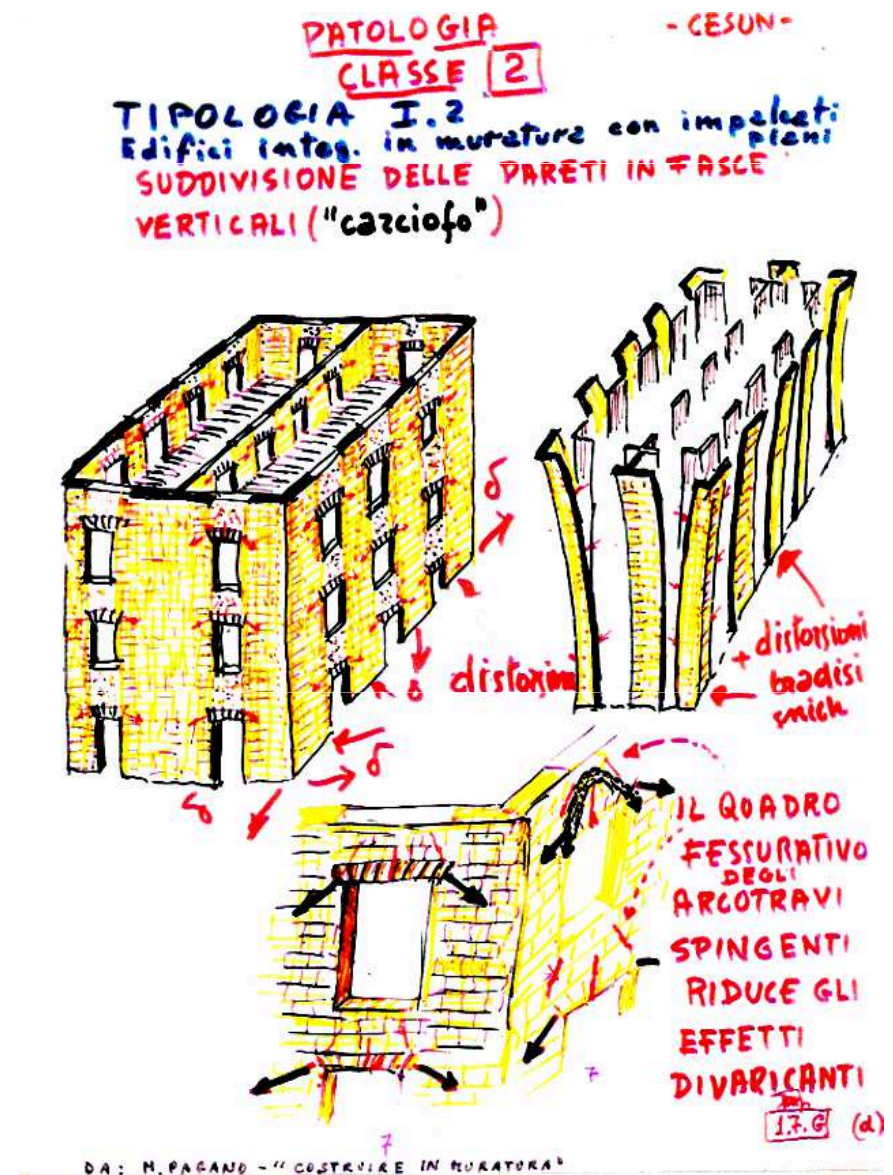 PATOLOGIA
- CESUN -
CLASSE 2
TIPOLOGIA I.2
Edifici integ. in muratura con impalcati
piani
SUDDIVISIONE DELLE PARETI IN FASCE
VERTICALI ("carciofo")
δ
δ
distorsioni
+ distorsioni
bradisi
smich
δ
δ
IL QUADRO
FESSURATIVO
DEGLI
ARCOTRAVI
SPINGENTI
RIDUCE GLI
EFFETTI
DIVARICANTI
7
1.7.G (d)
7
DA: M. PAGANO - "COSTRUIRE IN MURATURA"